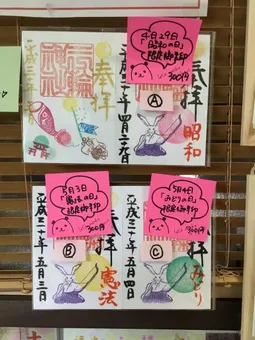 4月29日
「昭和の日」
限定御朱印
300円
奉拝
平成三十年
奉拝
平成三十年四月二十九日
昭和
A
5月3日
「憲法の日」
限定御朱印
300円
拝
平成三十年五月三日
憲法
B
5月4日
「みどりの日」
限定御朱印
300円
拝
平成三十年五月四日
みどり
C